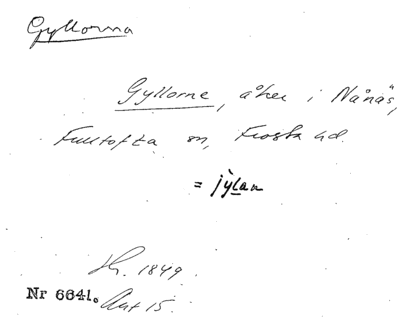 Gyllorna
Gyllorne, åker i Nånäs,
Fulltofta sn, Frosta hd.
= jy̲lan
Hr. 1849.
Nr 6641. Ant 15.